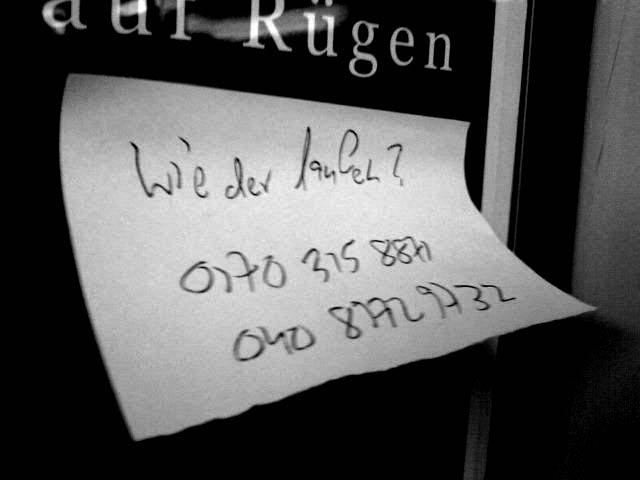 auf Rügen
Wie der laufen?
0170 315 8871
040 87729732